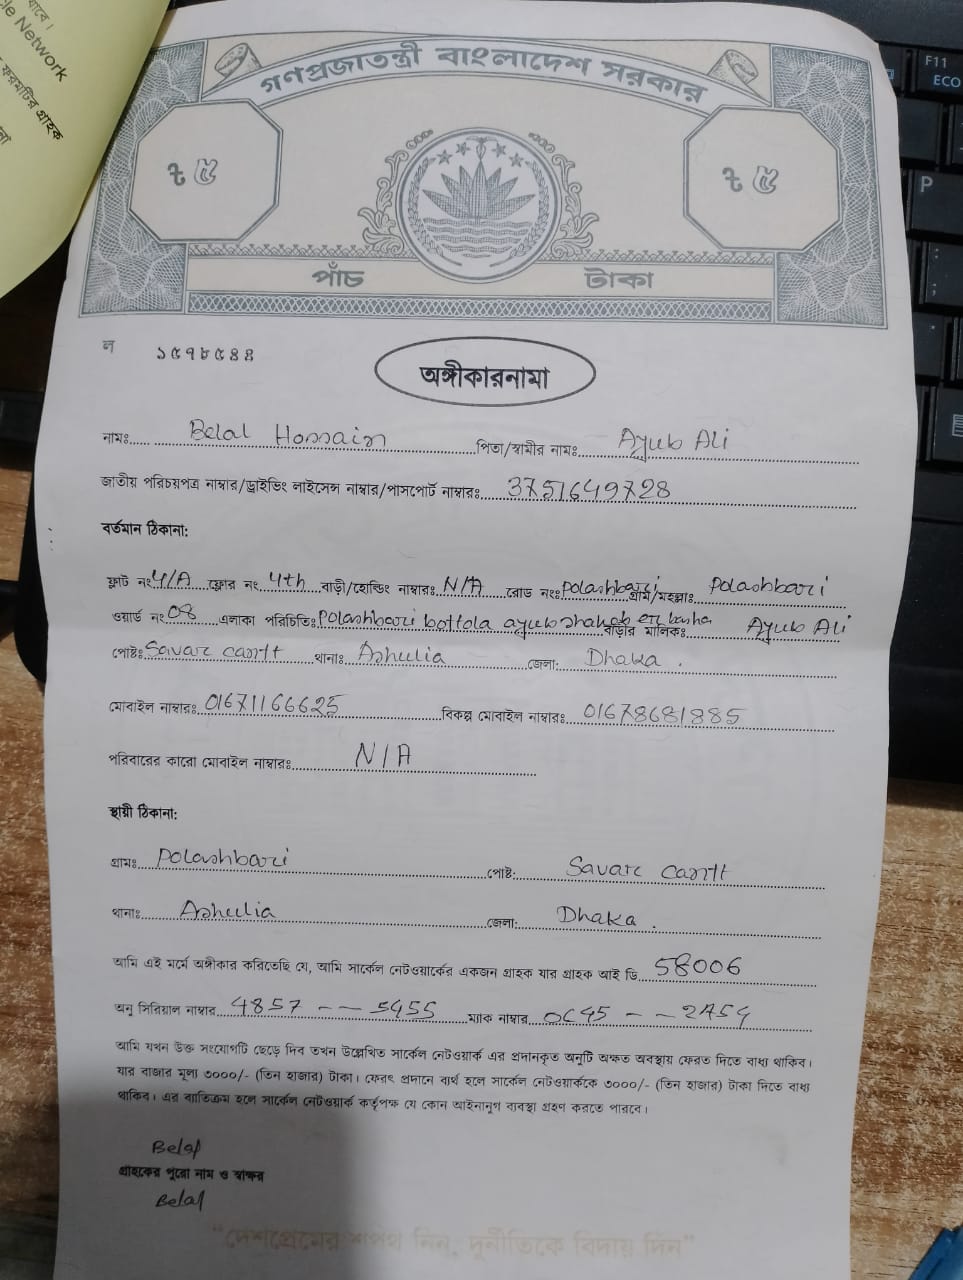 যাবে।
le Network
ফরমটির গ্রাহক
F11
ECO
P
গণপ্রজাতন্ত্রী বাংলাদেশ সরকার
৳ ৫
৳ ৫
পাঁচ টাকা
ল ১৫৭৮৫৪৪
অঙ্গীকারনামা
নামঃ Belal Hossain পিতা/স্বামীর নামঃ Ayub Ali
জাতীয় পরিচয়পত্র নাম্বার/ড্রাইভিং লাইসেন্স নাম্বার/পাসপোর্ট নাম্বারঃ 3751649728
বর্তমান ঠিকানা:
ফ্লাট নংঃ 4/A ফ্লোর নং 4th বাড়ী/হোল্ডিং নাম্বারঃ N/A রোড নংঃ Polashbari গ্রাম/মহল্লাঃ Polashbari
ওয়ার্ড নং 08 এলাকা পরিচিতিঃ Polashbari bottola ayub shaheb er basha বাড়ীর মালিকঃ Ayub Ali
পোষ্টঃ Savar cantt থানাঃ Ashulia জেলা: Dhaka .
মোবাইল নাম্বারঃ 01671166625 বিকল্প মোবাইল নাম্বারঃ 01678681885
পরিবারের কারো মোবাইল নাম্বারঃ N/A
স্থায়ী ঠিকানা:
গ্রামঃ Polashbari পোষ্ট: Savar cantt
থানাঃ Ashulia জেলা: Dhaka .
আমি এই মর্মে অঙ্গীকার করিতেছি যে, আমি সার্কেল নেটওয়ার্কের একজন গ্রাহক যার গ্রাহক আই ডি 58006
অনু সিরিয়াল নাম্বার 4857 -- 5455 ম্যাক নাম্বার 0C45 -- 2A54
আমি যখন উক্ত সংযোগটি ছেড়ে দিব তখন উল্লেখিত সার্কেল নেটওয়ার্ক এর প্রদানকৃত অনুটি অক্ষত অবস্থায় ফেরত দিতে বাধ্য থাকিব।
যার বাজার মূল্য ৩০০০/- (তিন হাজার) টাকা। ফেরৎ প্রদানে ব্যর্থ হলে সার্কেল নেটওয়ার্ককে ৩০০০/- (তিন হাজার) টাকা দিতে বাধ্য
থাকিব। এর ব্যতিক্রম হলে সার্কেল নেটওয়ার্ক কর্তৃপক্ষ যে কোন আইনানুগ ব্যবস্থা গ্রহণ করতে পারবে।
Belal
গ্রাহকের পুরো নাম ও স্বাক্ষর
Belal
"দেশপ্রেমের শপথ নিন, দুর্নীতিকে বিদায় দিন"